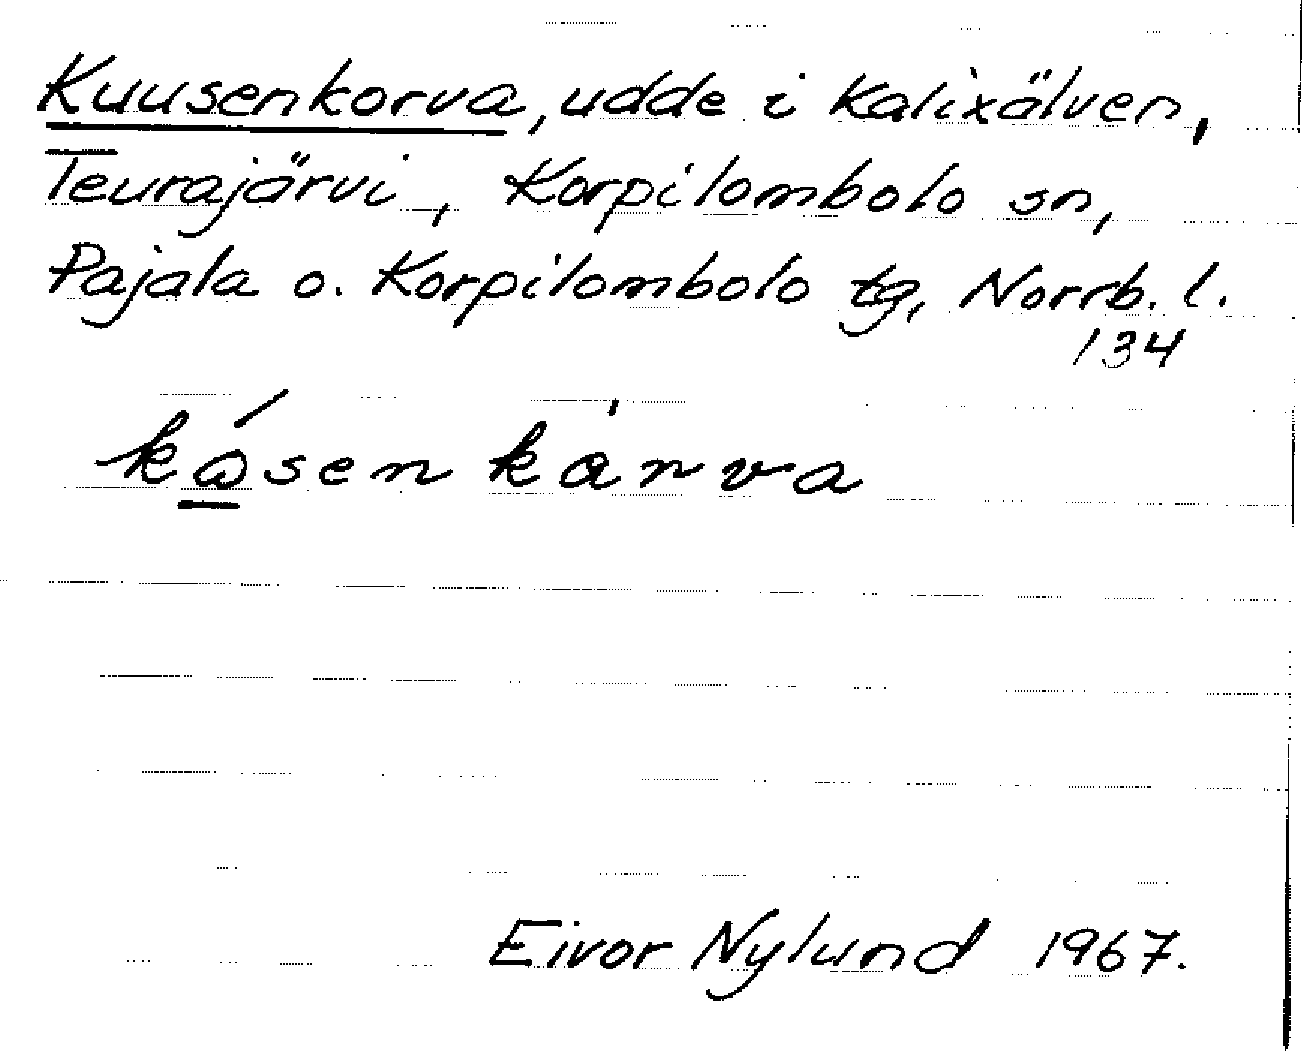 Kuusenkorva, udde i Kalixälven,
Teurajärvi, Korpilombolo sn,
Pajala o. Korpilombolo tg, Norrb. l.
134
Eivor Nylund 1967.